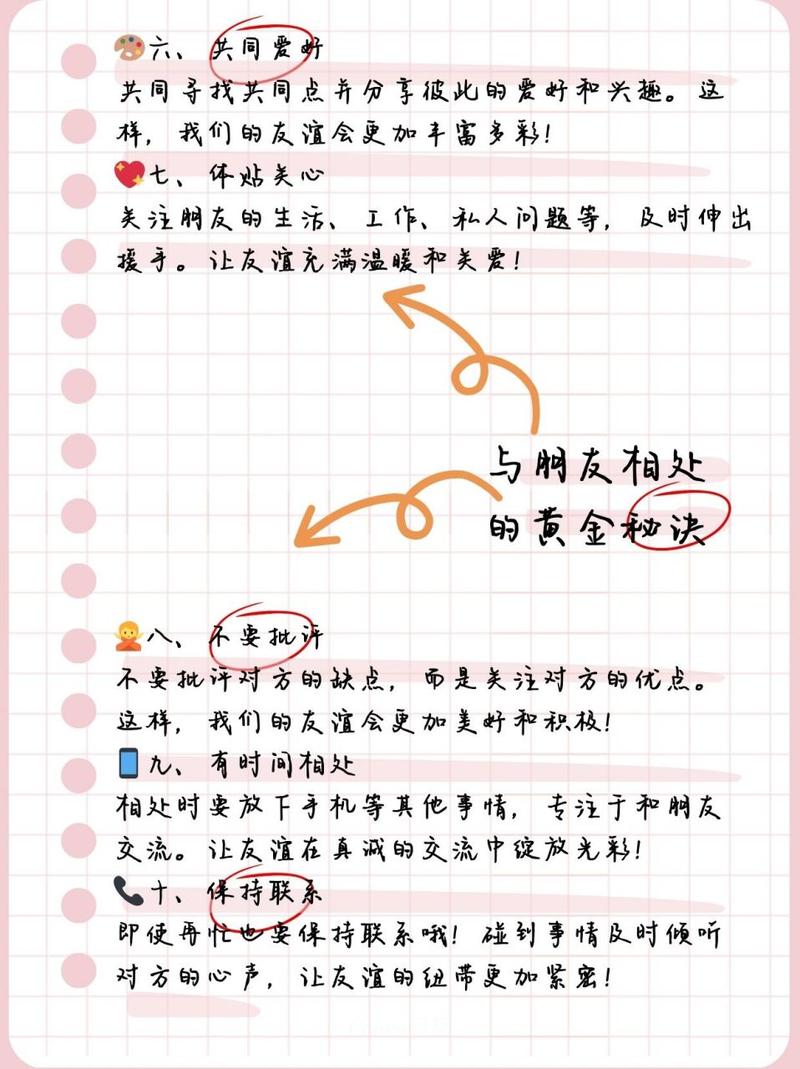 🎨六、共同爱好
共同寻找共同点并分享彼此的爱好和兴趣。这
样，我们的友谊会更加丰富多彩！
💖七、体贴关心
关注朋友的生活、工作、私人问题等，及时伸出
援手。让友谊充满温暖和关爱！
与朋友相处
的黄金秘诀
🙅八、不要批评
不要批评对方的缺点，而是关注对方的优点。
这样，我们的友谊会更加美好和积极！
📱九、有时间相处
相处时要放下手机等其他事情，专注于和朋友
交流。让友谊在真诚的交流中绽放光彩！
📞十、保持联系
即使再忙也要保持联系哦！碰到事情及时倾听
对方的心声，让友谊的纽带更加紧密！